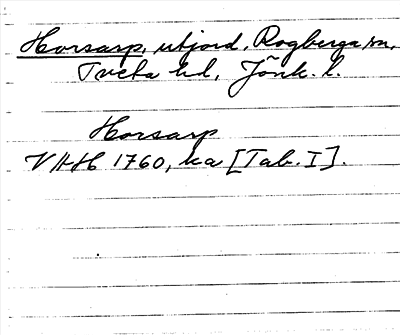 Horsarp, utjord, Rogberga sn,
Tveta hd, Jönk. l.
Horsarp
VHH 1760, ka [Tab. I].